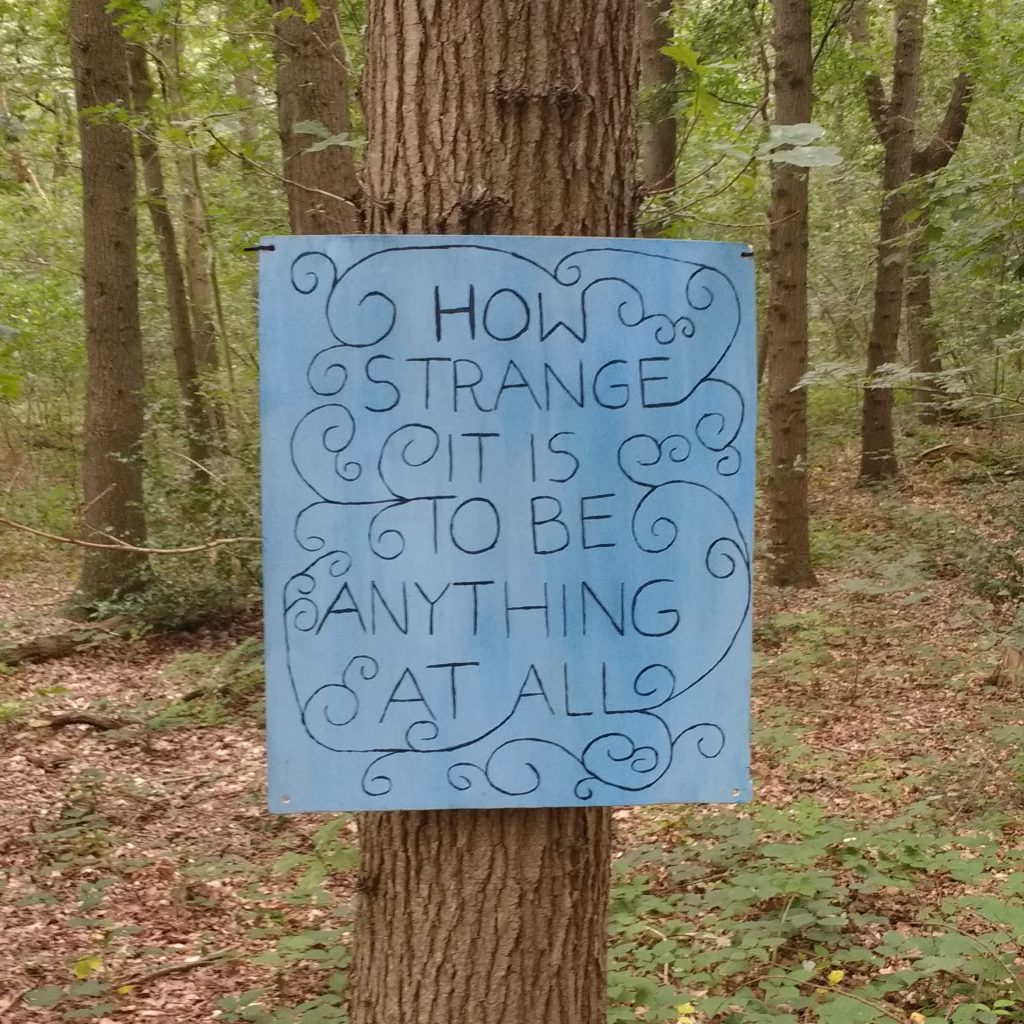 HOW
STRANGE
IT IS
TO BE
ANYTHING
AT ALL